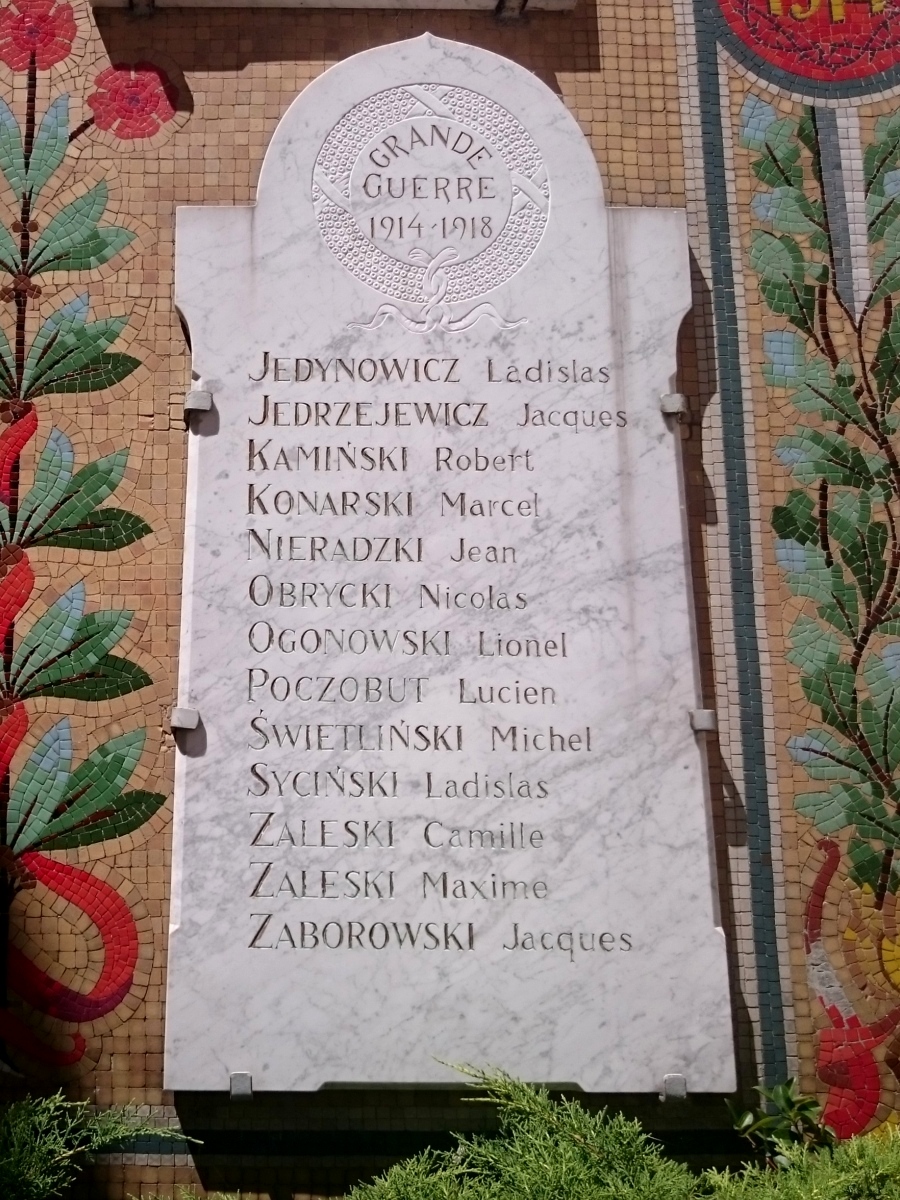 1914
GRANDE
GUERRE
1914-1918
JEDYNOWICZ Ladislas
JEDRZEJEWICZ Jacques
KAMIŃSKI Robert
KONARSKI Marcel
NIERADZKI Jean
OBRYCKI Nicolas
OGONOWSKI Lionel
POCZOBUT Lucien
ŚWIETLIŃSKI Michel
SYCIŃSKI Ladislas
ZALESKI Camille
ZALESKI Maxime
ZABOROWSKI Jacques